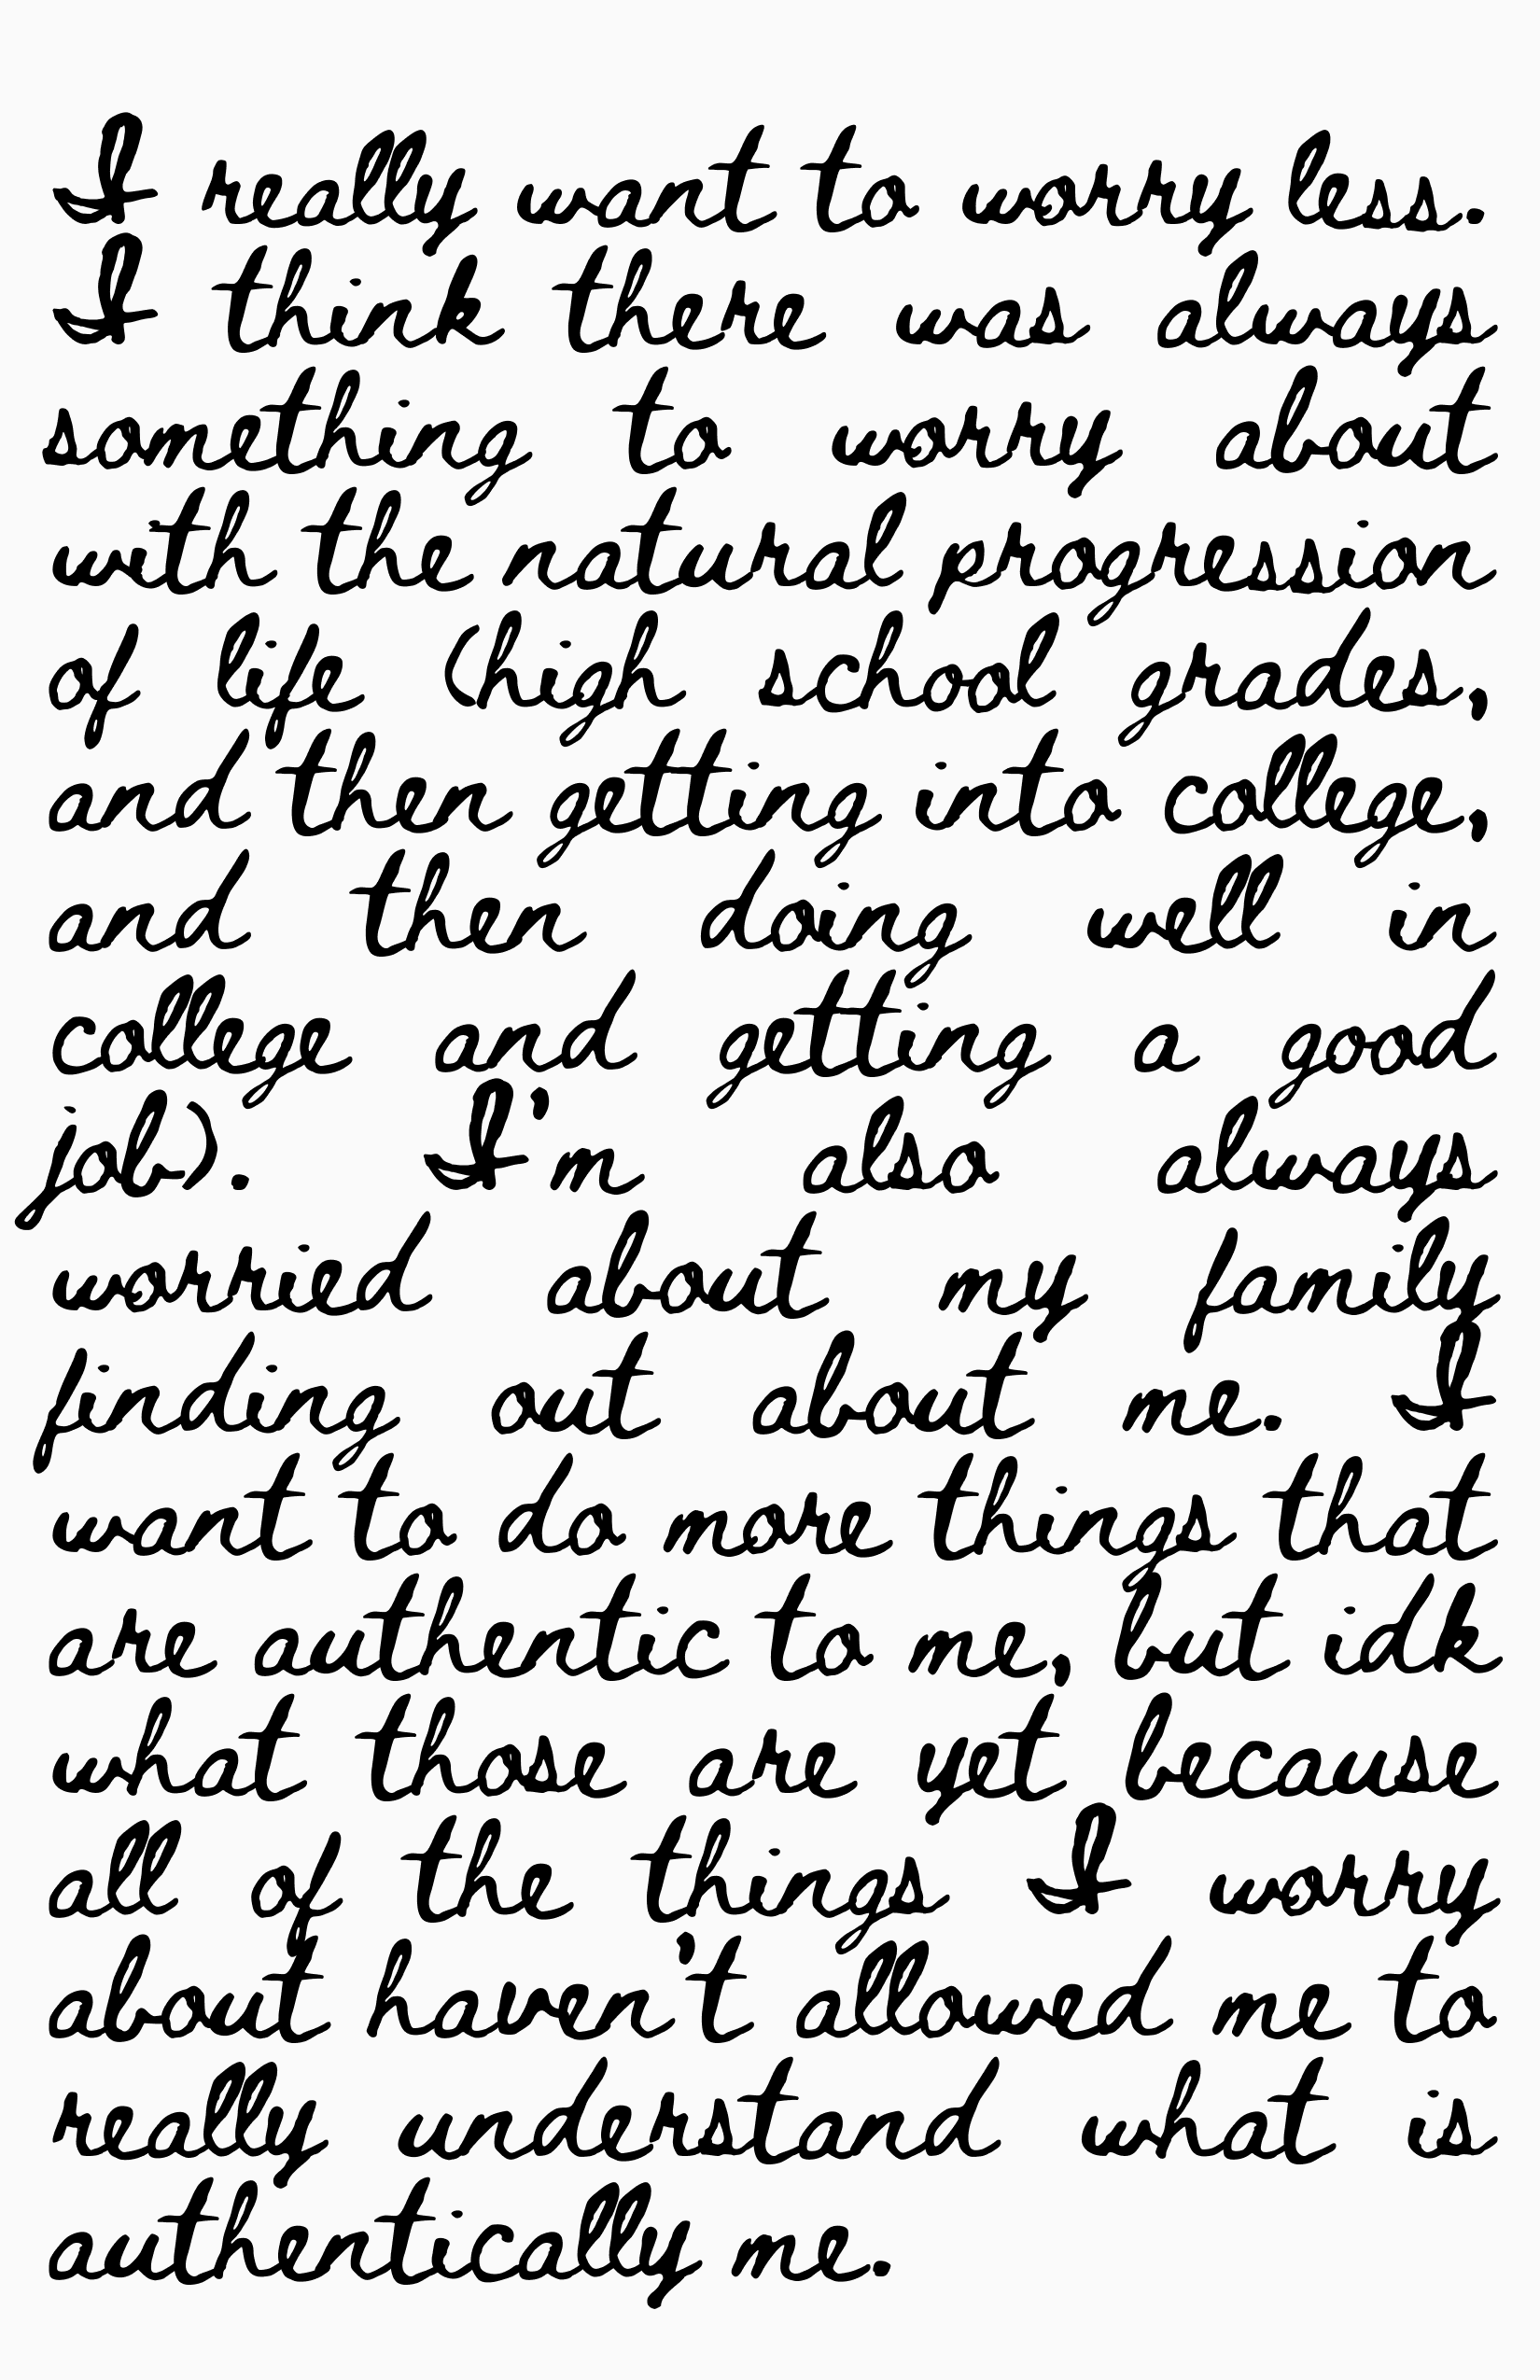 I really want to worry less.
I think there was always
something to worry about
with the natural progression
of life (high school grades,
and then getting into college,
and then doing well in
college and getting a good
job). I'm also always
worried about my family
finding out about me. I
want to do more things that
are authentic to me, but idk
what those are yet because
all of the things I worry
about haven't allowed me to
really understand what is
authentically me.